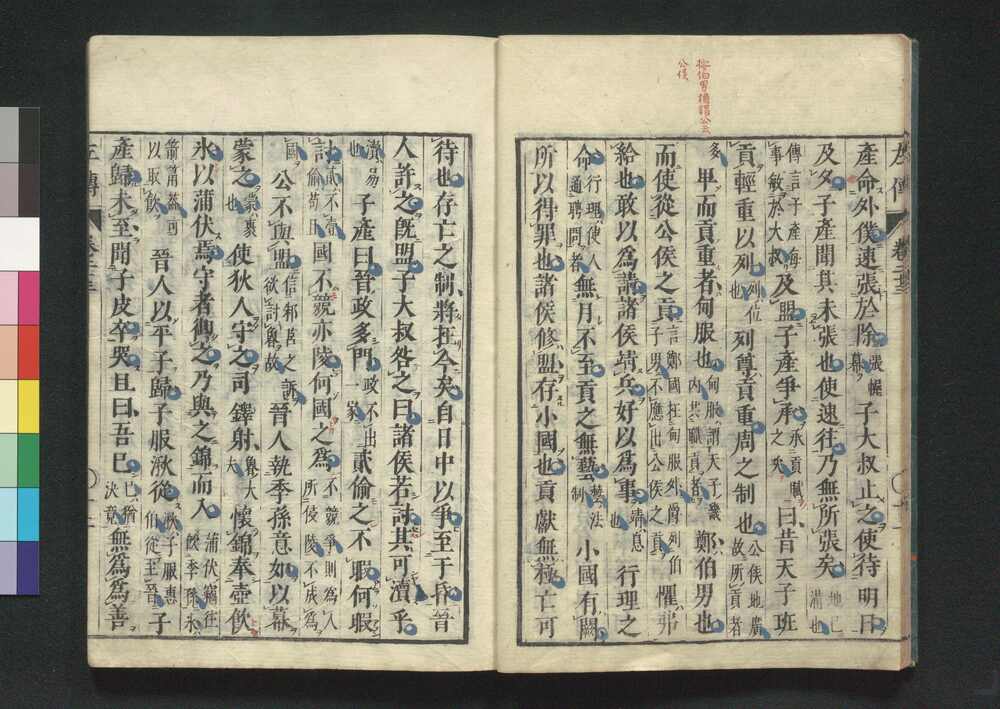 產命外僕速張於除張幄幕子大叔止之使待明日
及夕子產聞其未張也使速往乃無所張矣地已滿也
傳言子產每事敏於大叔及盟子產爭承承貢賦之次曰昔天子班
貢輕重以列列位也列尊貢重周之制也公侯地廣故所貢者
多卑而貢重者甸服也甸服謂天子畿內共職貢者鄭伯男也
而使從公侯之貢言鄭國在甸服外爵列伯子男不應出公侯之貢懼弗
給也敢以為請諸侯靖兵好以為事靖息也行理之
命行理使人通聘問者無月不至貢之無藝藝法制小國有闕
所以得罪也諸侯修盟存小國也貢獻無極亡可
待也存亡之制將在今矣自日中以爭至于昏晉
人許之既盟子大叔咎之曰諸侯若討其可瀆乎
瀆易也子產曰晉政多門政不出一家貳偷之不暇何暇
討貳不壹偷苟且國不競亦陵何國之為不競爭則為人所侵陵不成為
國公不與盟信邾莒之訴欲討魯故晉人執季孫意如以幕
蒙之蒙裹也使狄人守之司鐸射魯大夫懷錦奉壺飲
冰以蒲伏焉守者御之乃與之錦而入蒲伏竊往飲季孫冰
箭筩蓋可以取飲晉人以平子歸子服湫從湫子服惠伯從至晉子
產歸未至聞子皮卒哭且曰吾已已猶決竟無為為善